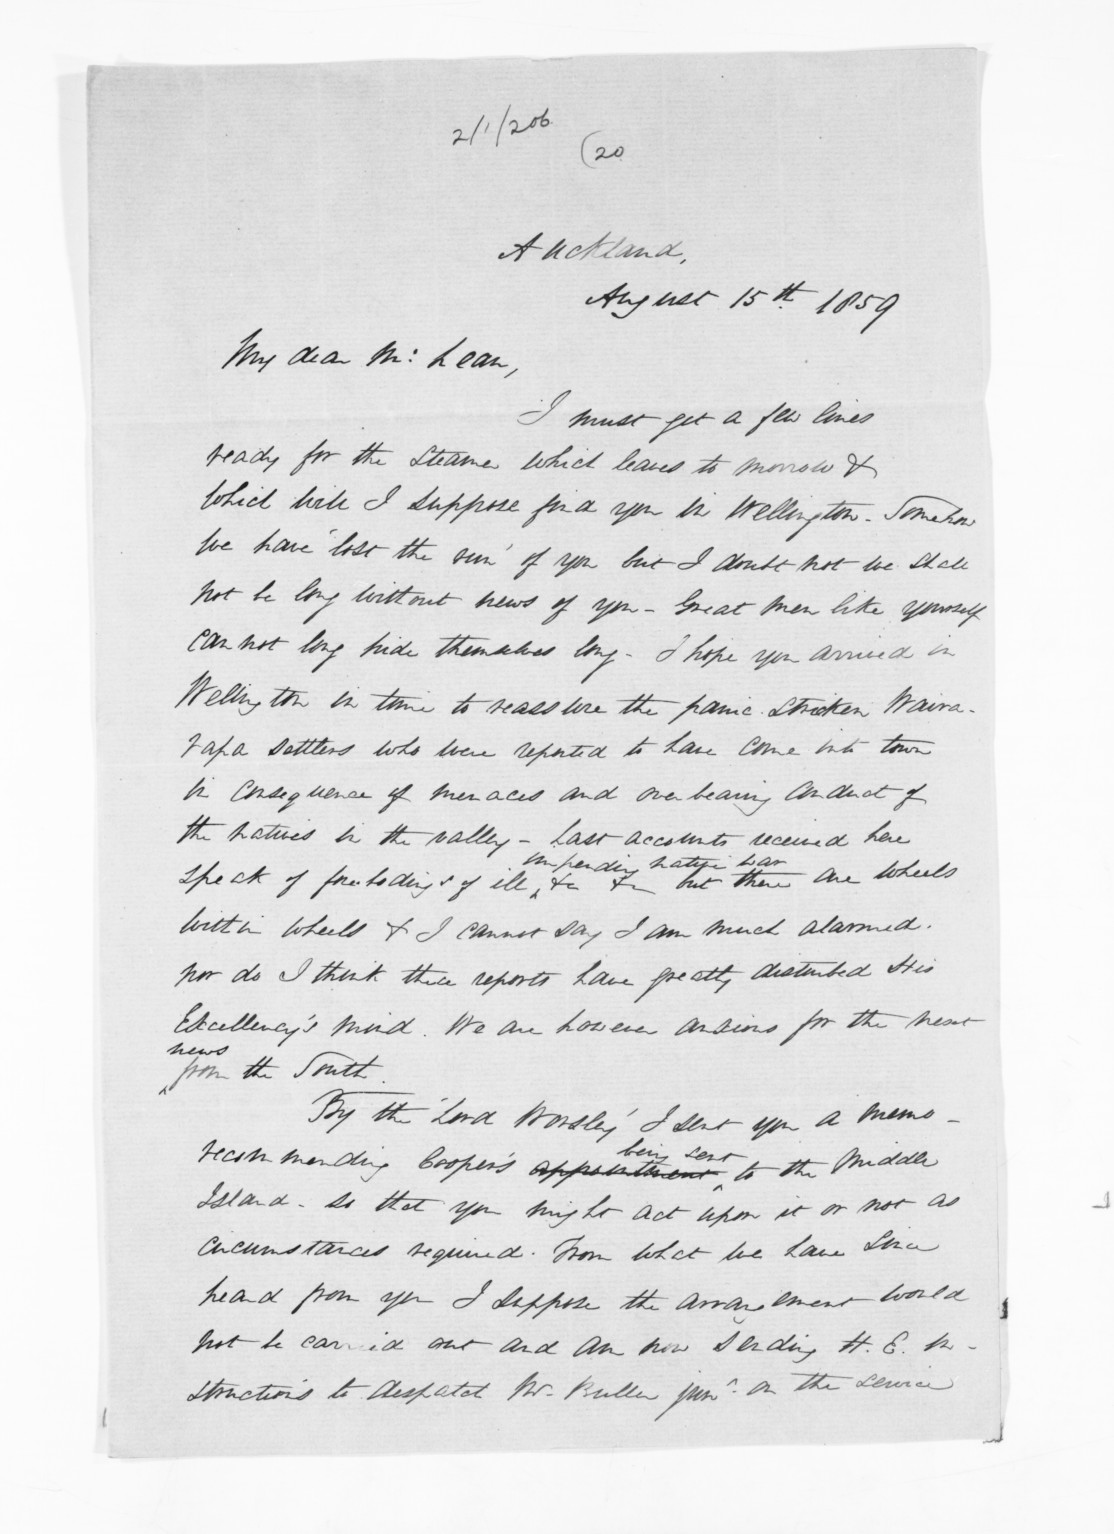 2/1/206
(20
Auckland,
August 15th 1859
My dear Mc: Lean,
I must get a few lines
ready for the Steamer which leaves to morrow &
which will I suppose find you in Wellington - Somehow
we have 'lost the run' of you but I doubt not we shall
not be long without news of you - Great men like yourself
cannot long hide themselves long - I hope you arrived in
Wellington in time to reassure the panic stricken Waira-
rapa settlers who were reported to have come into town
in consequence of menaces and overbearing conduct of
the natives in the valley - Last accounts received here
impending native war
speak of forebodings of ill ^ &c &c but there are wheels
within wheels & I cannot say I am much alarmed.
nor do I think these reports have greatly disturbed His
Excellency's mind. We are however anxious for the next
news
^ from the South.
By the 'Lord Worsley' I sent you a memo -
being sent
recommending Cooper's appointment ^ to the Middle
Island - so that you might act upon it or not as
circumstances required. From what we have since
heard from you I suppose the arrangement would
not be carried out and am now sending H. E. in-
structions to despatch Mr. Buller junr. on the service